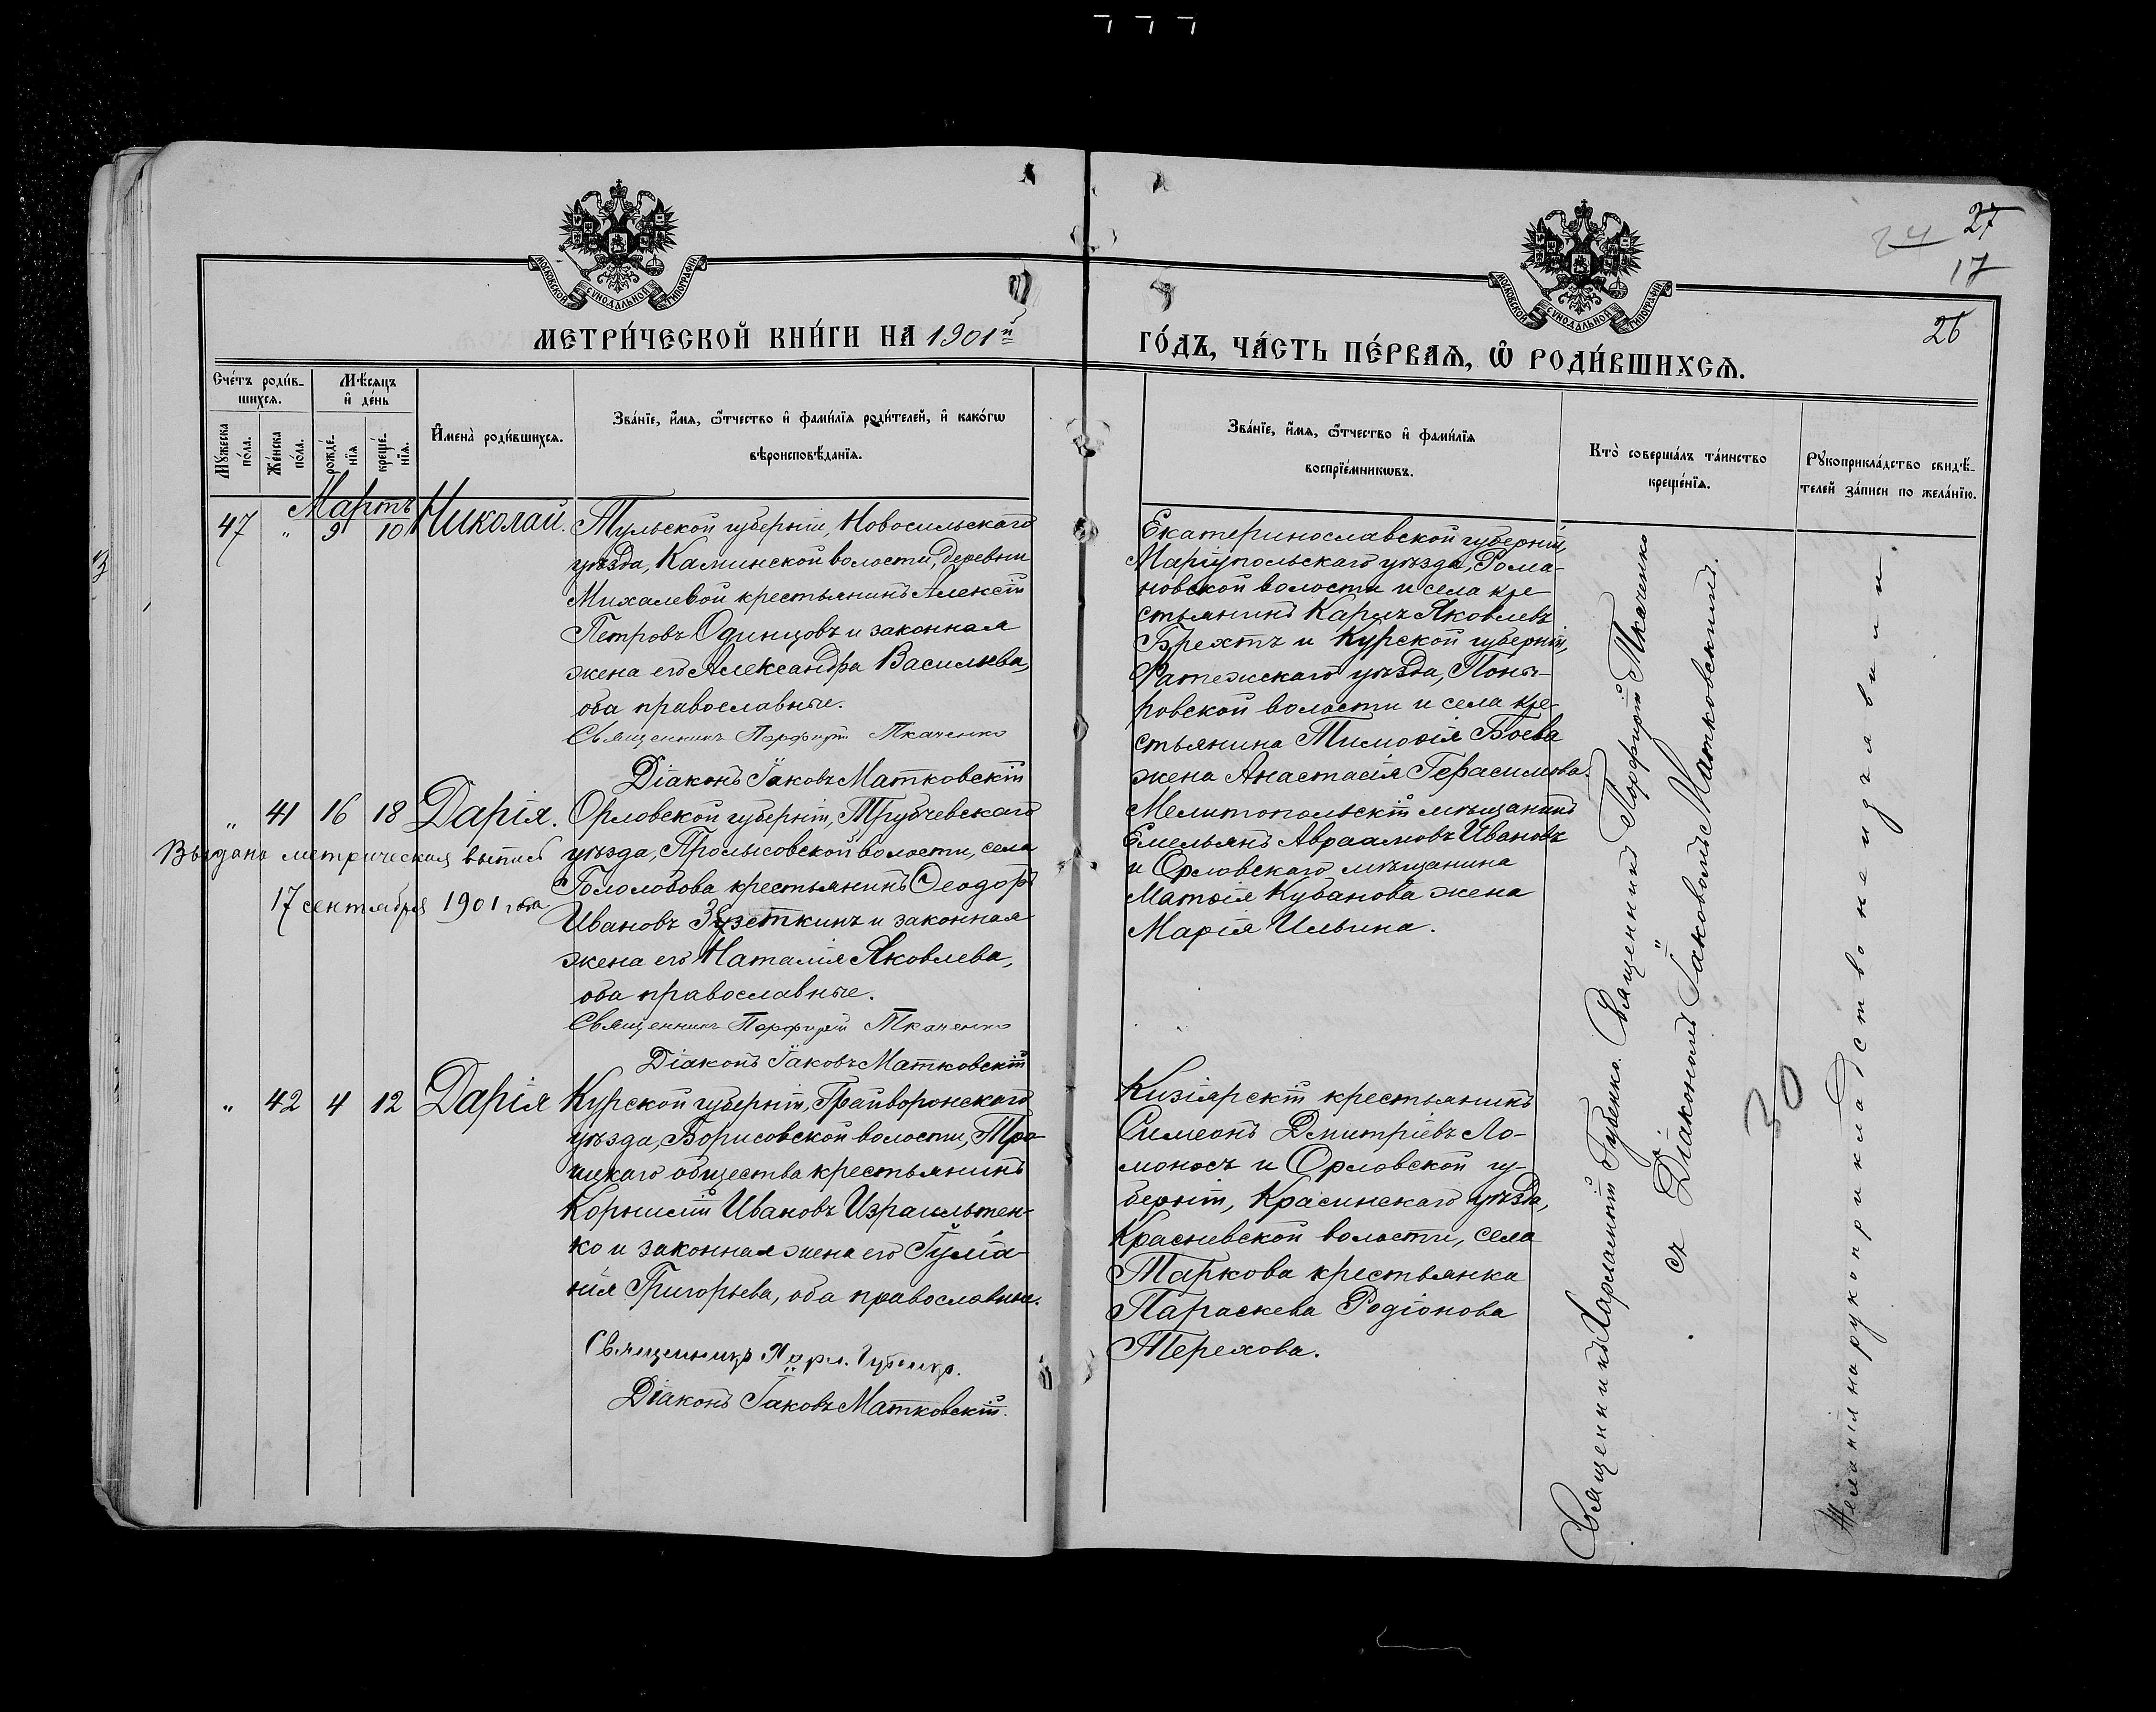 27
24
17
26
МОСКОВСКОЙ СѴНОДАЛЬНОЙ ТИПОГРАФІИ
МОСКОВСКОЙ СѴНОДАЛЬНОЙ ТИПОГРАФІИ
МЕТРИ́ЧЕСКОЙ КНИ́ГИ НА 1901й
ГО́ДЪ, ЧА́СТЬ ПЕ́РВАѦ, Ѡ҆ РОДИ́ВШИХСѦ.
Сче́тъ роди́в-
шихсѧ.
Мѣ́сѧцъ
и҆ де́нь
Мꙋ́жеска
по́ла.
Же́нска
по́ла.
рожде́-
нїѧ
креще́-
нїѧ.
И҆мена̀ роди́вшихсѧ.
Зва́нїе, и҆́мѧ, ѻ҆́тчество и҆ фами́лїѧ роди́телей, и҆ како́гѡ
вѣроисповѣ́данїѧ.
Зва́нїе, и҆́мѧ, ѻ҆́тчество и҆ фами́лїѧ
воспрїе́мникѡвъ.
Кто̀ соверша́лъ та́инство
креще́нїѧ.
Рꙋкоприкла́дство свидѣ́-
телей за́писи по жела́нїю.
Мартъ
47 " 9 10 Николай.
Тульской губерніи, Новосильскаго
уѣзда, Каминской волости, деревни
Михалевой крестьянинъ Алексій
Петровъ Одинцовъ и законная
жена его Александра Васильева,
оба православные.
Священникъ Порфирій Ткаченко
Діаконъ Іаковъ Матковскій
Екатеринославской губерніи,
Маріупольскаго уѣзда, Рома-
новской волости и села кре-
стьянинъ Карпъ Яковлевъ
Брехтъ и Курской губерніи,
Фатежскаго уѣзда, Поны-
ровской волости и села кре-
стьянина Тимоѳія Боева
жена Анастасія Герасимова.
" 41 16 18 Дарія.
Выдана метрическая выпись
17 сентября 1901 года
Орловской губерніи, Трубчевскаго
уѣзда, Пролысовской волости, села
Гололобова крестьянинъ Ѳеодоръ
Ивановъ и законная
жена его Наталія Яковлева,
оба православные.
Священникъ Порфирій Ткаченко
Діаконъ Іаковъ Матковскій
Мелитопольскій мѣщанинъ
Емельянъ Авраамовъ Ивановъ
и Орловскаго мѣщанина
Матѳія Кубанова жена
Марія Ильина.
" 42 4 12 Дарія
Курской губерніи, Грайворонскаго
уѣзда, Борисовской волости, Тро-
ицкаго общества крестьянинъ
Корнилій Ивановъ Израильтен-
ко и законная жена его Іуліа-
нія Григорьева, оба православные.
Священникъ Харл. Губенко.
Діаконъ Іаковъ Матковскій.
Кизіярскій крестьянинъ
Симеонъ Дмитріевъ Ло-
моносъ и Орловской гу-
берніи, Красинскаго уѣзда,
Красневской волости, села
Таркова крестьянка
Параскева Родіонова
Терехова.
Священникъ Харлампій Губенко. Священникъ Порфирій Ткаченко
съ Діакономъ Іаковомъ Матковскимъ.
30
Желанія на рукоприкладство не изъявили.